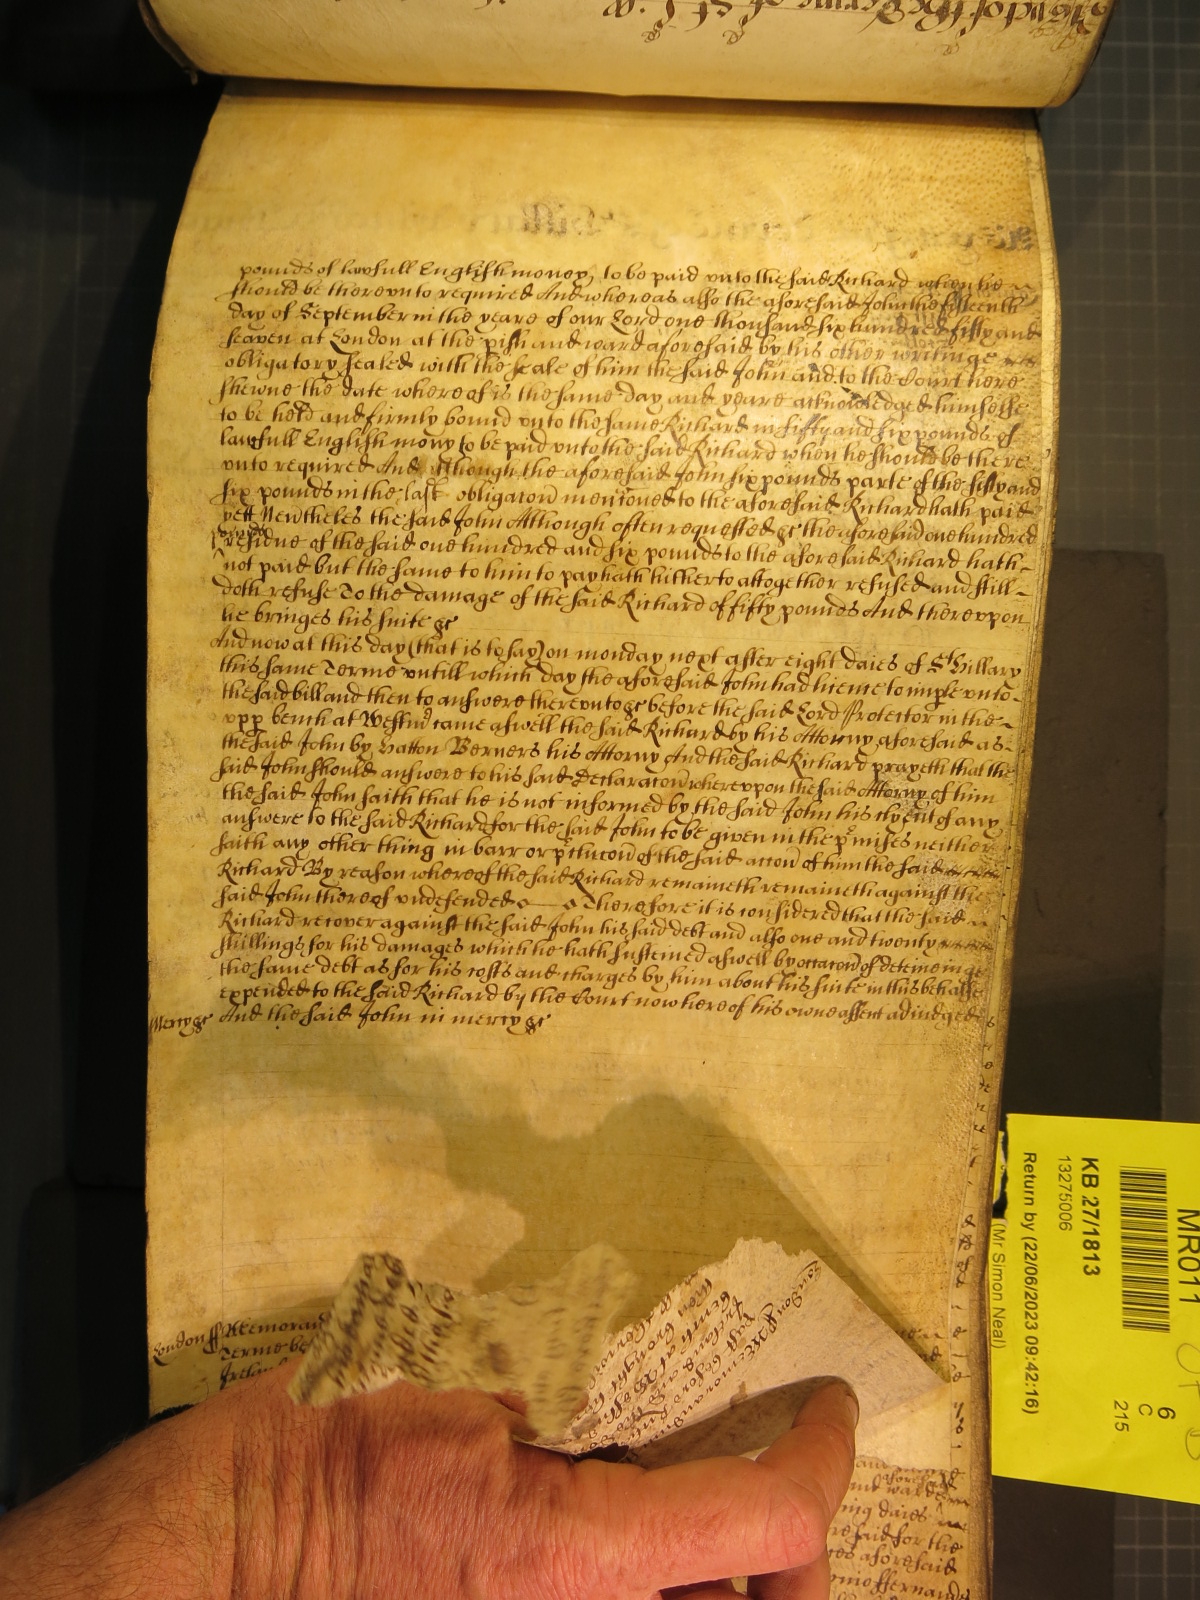 pounds of lawfull English money, to be paid vnto the said Richard when he
should be therevnto required And whereas also the aforesaid John the fifteenth
day of September in the yeare of our Lord one thousand six hundred fifty and
seaven at London at the pish and ward aforesaid by his other writinge
obligatory sealed with the seale of him the said John and to the Court here
shewne the date whereof is the same day and yeare acknowledged himselfe
to be held and firmly bound vnto the same Richard in fifty and six pounds of
lawfull English mony to be paid vnto the said Richard when he should be there
vnto required And although the aforesaid John six pounds parte of the fifty and
six pounds in the last obligatoñ mencioned to the aforesaid Richard hath paid
yett Neutheles the said John Although often requested &c the aforesaid one hundred
residue of the said one hundred and six pounds to the aforesaid Richard hath
not paid but the same to him to pay hath hitherto altogether refused and still
doth refuse To the damage of the said Richard of fifty pounds And therevpon
he bringes his suite &c
And now at this day (that is to say) on monday next after eight daies of St Hillary
this same Terme vntill which day the aforesaid John had licence to imple vnto
the said bill and then to answere therevnto &c before the said Lord Protector in the
vpp bench at Westm̃ came aswell the said Richard by his Attorny aforesaid as
the said John by Hatton Berners his Attorny And the said Richard prayeth that the
said John should answere to his said Declaracoñ wherevpon the said Attorny of him
the said John saith that he is not informed by the said John his clyent of any
answere to the said Richard for the said John to be given in the pmises neither
saith any other thing in barr or pclucoñ of the said accoñ of him the said
Richard By reason whereof the said Richard remaineth remaineth against the
said John thereof vndefended Therefore it is considered that the said
Richard recover against the said John his said debt and also one and twenty
shillings for his damages which he hath susteined aswell by occacoñ of deteineinge
the same debt as for his costs and charges by him about his suite in this behalfe
expended to the said Richard by the Court now here of his owne assent adiudged
Mercy &c And the said John in mercy &c
London ss Memorand
Terme be
KB 27/1813
13275006
Return by (22/06/2023 09:42:16)
(Mr Simon Neal)
MR011
6
C
215